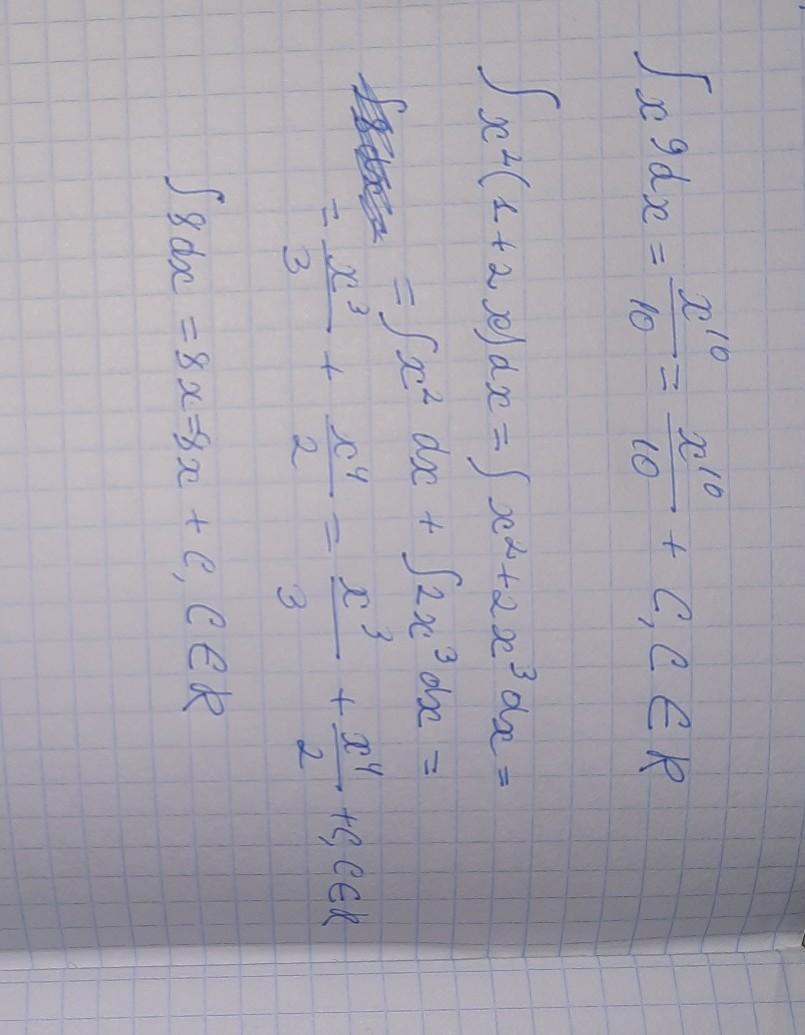 ∫x⁹dx = x¹⁰/10 = x¹⁰/10 + C, C ∈ R
∫x²(1+2x)dx = ∫x²+2x³dx =
= ∫x² dx + ∫2x³dx =
= x³/3 + x⁴/2 = x³/3 + x⁴/2 + C, C∈R
∫8dx = 8x = 8x + C, C ∈ R